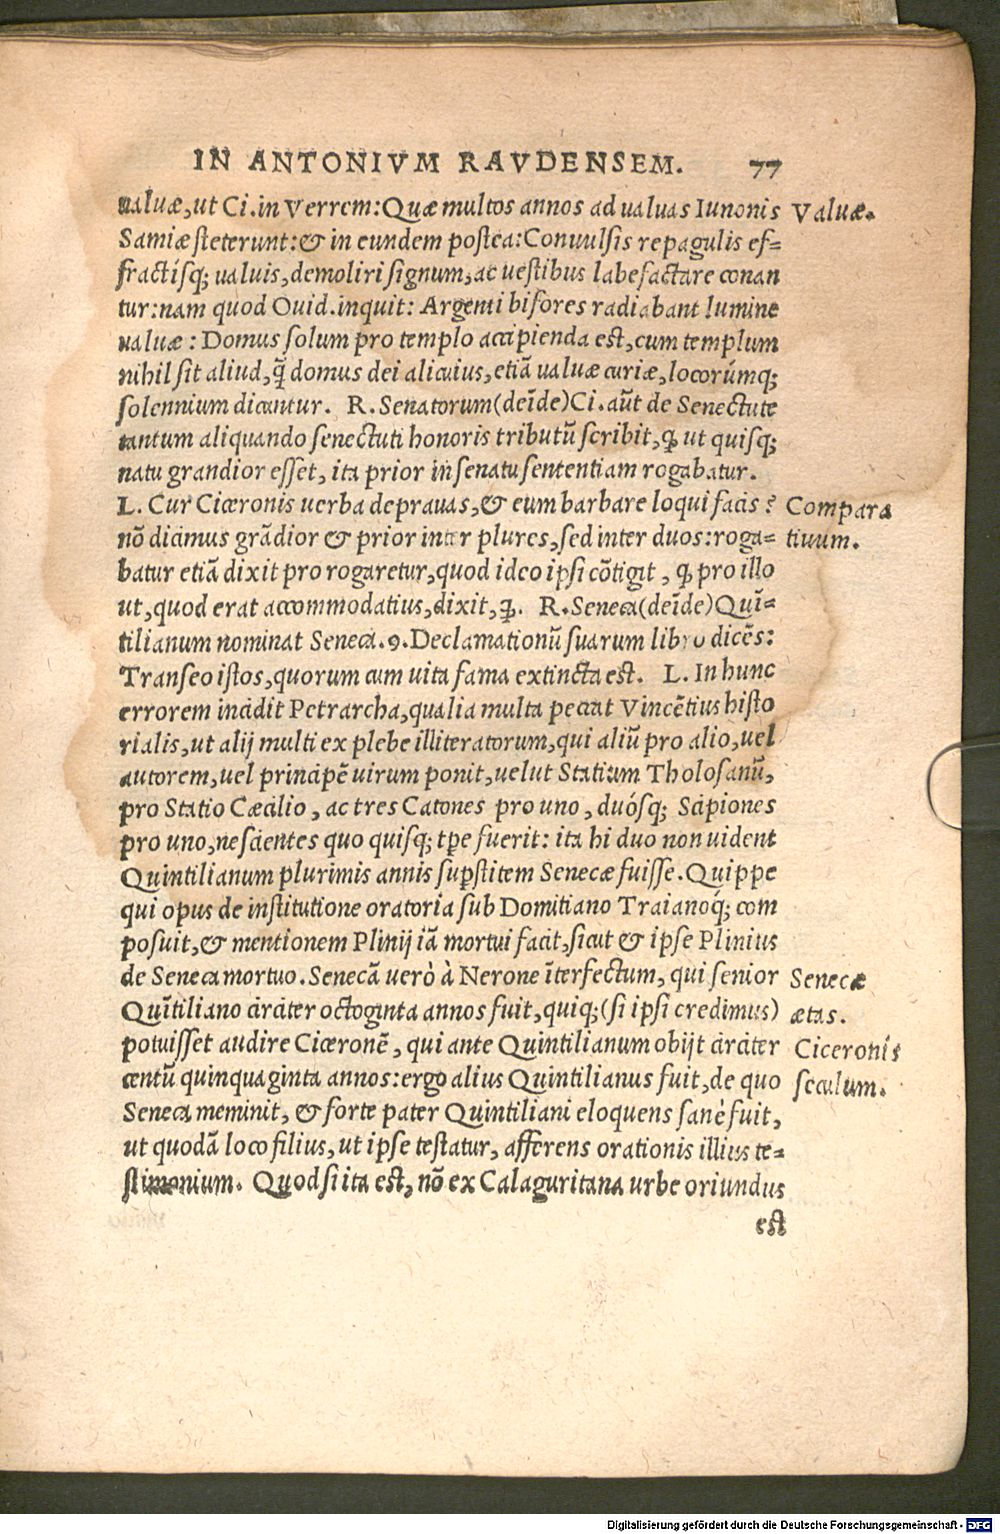 IN ANTONIVM RAVDENSEM. 77
ualuæ, ut Ci. in Verrem: Quæ multos annos ad ualuas Iunonis Valuæ.
Samiæ steterunt: & in eundem postea: Conuulsis repagulis ef=
fractísq; ualuis, demoliri signum, ac uestibus labefactare conan
tur: nam quod Ouid. inquit: Argenti bifores radiabant lumine
ualuæ: Domus solum pro templo accipienda est, cum templum
nihil sit aliud, q̃ domus dei alicuius, etiã ualuæ curiæ, locorúmq;
solennium dicuntur. R. Senatorum (deīde) Ci. aūt de Senectute
tantum aliquando senectuti honoris tributū scribit, ꝙ ut quisq;
natu grandior esset, ita prior in senatu sententiam rogabatur.
L. Cur Ciceronis uerba deprauas, & eum barbare loqui facis? Compara
nō dicimus grādior & prior inter plures, sed inter duos: roga= tiuum.
batur etiā dixit pro rogaretur, quod ideo ipsi cōtigit, ꝙ pro illo
ut, quod erat accommodatius, dixit, ꝙ. R. Seneca (deīde) Quī=
tilianum nominat Seneca. 9. Declamationū suarum libro dicēs:
Transeo istos, quorum cum uita fama extincta est. L. In hunc
errorem incidit Petrarcha, qualia multa peccat Vincētius histo
rialis, ut alij multi ex plebe illiteratorum, qui aliū pro alio, uel
autorem, uel principē uirum ponit, uelut Statium Tholosanū,
pro Statio Cæcilio, ac tres Catones pro uno, duósq; Scipiones
pro uno, nescientes quo quisq; tꝑe fuerit: ita hi duo non uident
Quintilianum plurimis annis suꝑstitem Senecæ fuisse. Quippe
qui opus de institutione oratoria sub Domitiano Traianoq́; com
posuit, & mentionem Plinij iā mortui facit, sicut & ipse Plinius
de Seneca mortuo. Senecā uerò à Nerone īterfectum, qui senior Senecæ
Quītiliano circiter octoginta annos fuit, quiq; (si ipsi credimus) ætas.
potuisset audire Ciceronē, qui ante Quintilianum obijt circiter Ciceronis
centū quinquaginta annos: ergo alius Quintilianus fuit, de quo seculum.
Seneca meminit, & forte pater Quintiliani eloquens sanè fuit,
ut quodā loco filius, ut ipse testatur, afferens orationis illius te=
stimonium. Quod si ita est, nō ex Calaguritana urbe oriundus
est
Digitalisierung gefördert durch die Deutsche Forschungsgemeinschaft - DFG